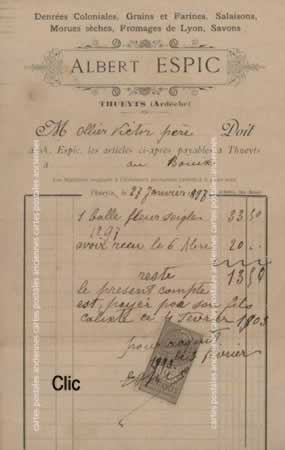 Denrées Coloniales, Grains et Farines, Salaisons,
Morues sèches, Fromages de Lyon, Savons
ALBERT ESPIC
THUEYTS (Ardèche)
M Ollier Victor père Doit
à A. Espic, les articles ci-après payables à Thueyts
à au
Thueyts, le 27 Janvier 189
1 balle fleur seigle 33 50
1897
avoir reçu le 6 20 "
reste 13 50
le present compte
est payer par son fils
ce 4 fevrier 1903
pour acquit
le 3 fevrier
1903
Clic
cartes postales anciennes cartes postales anciennes cartes postales anciennes